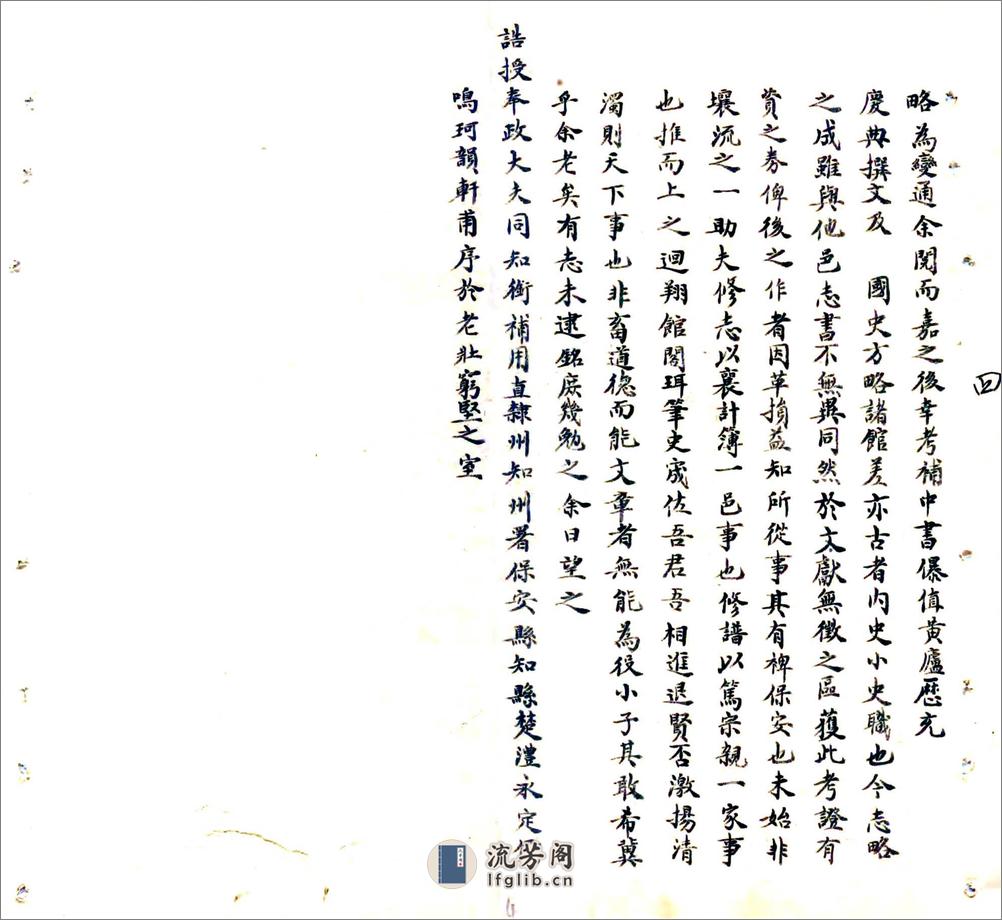 略為變通余閱而嘉之後幸考補中書儤值黃廬歷充
慶典撰文及　國史方略諸館差亦古者內史小史職也今志略
之成雖與他邑志書不無異同然於文獻無徵之區獲此考證有
資之券俾後之作者因革損益知所從事其有裨保安也未始非
壤流之一助夫修志以襄計簿一邑事也修譜以篤宗親一家事
也推而上之迴翔館閣珥筆史宬佐吾君吾相進退賢否激揚清
濁則天下事也非畜道德而能文章者無能為役小子其敢希冀
乎余老矣有志未逮銘庶幾勉之余日望之
誥授奉政大夫同知銜補用直隸州知州署保安縣知縣楚澧永定
鳴珂韻軒甫序於老壯窮堅之室
四
流芳阁
lfglib.cn